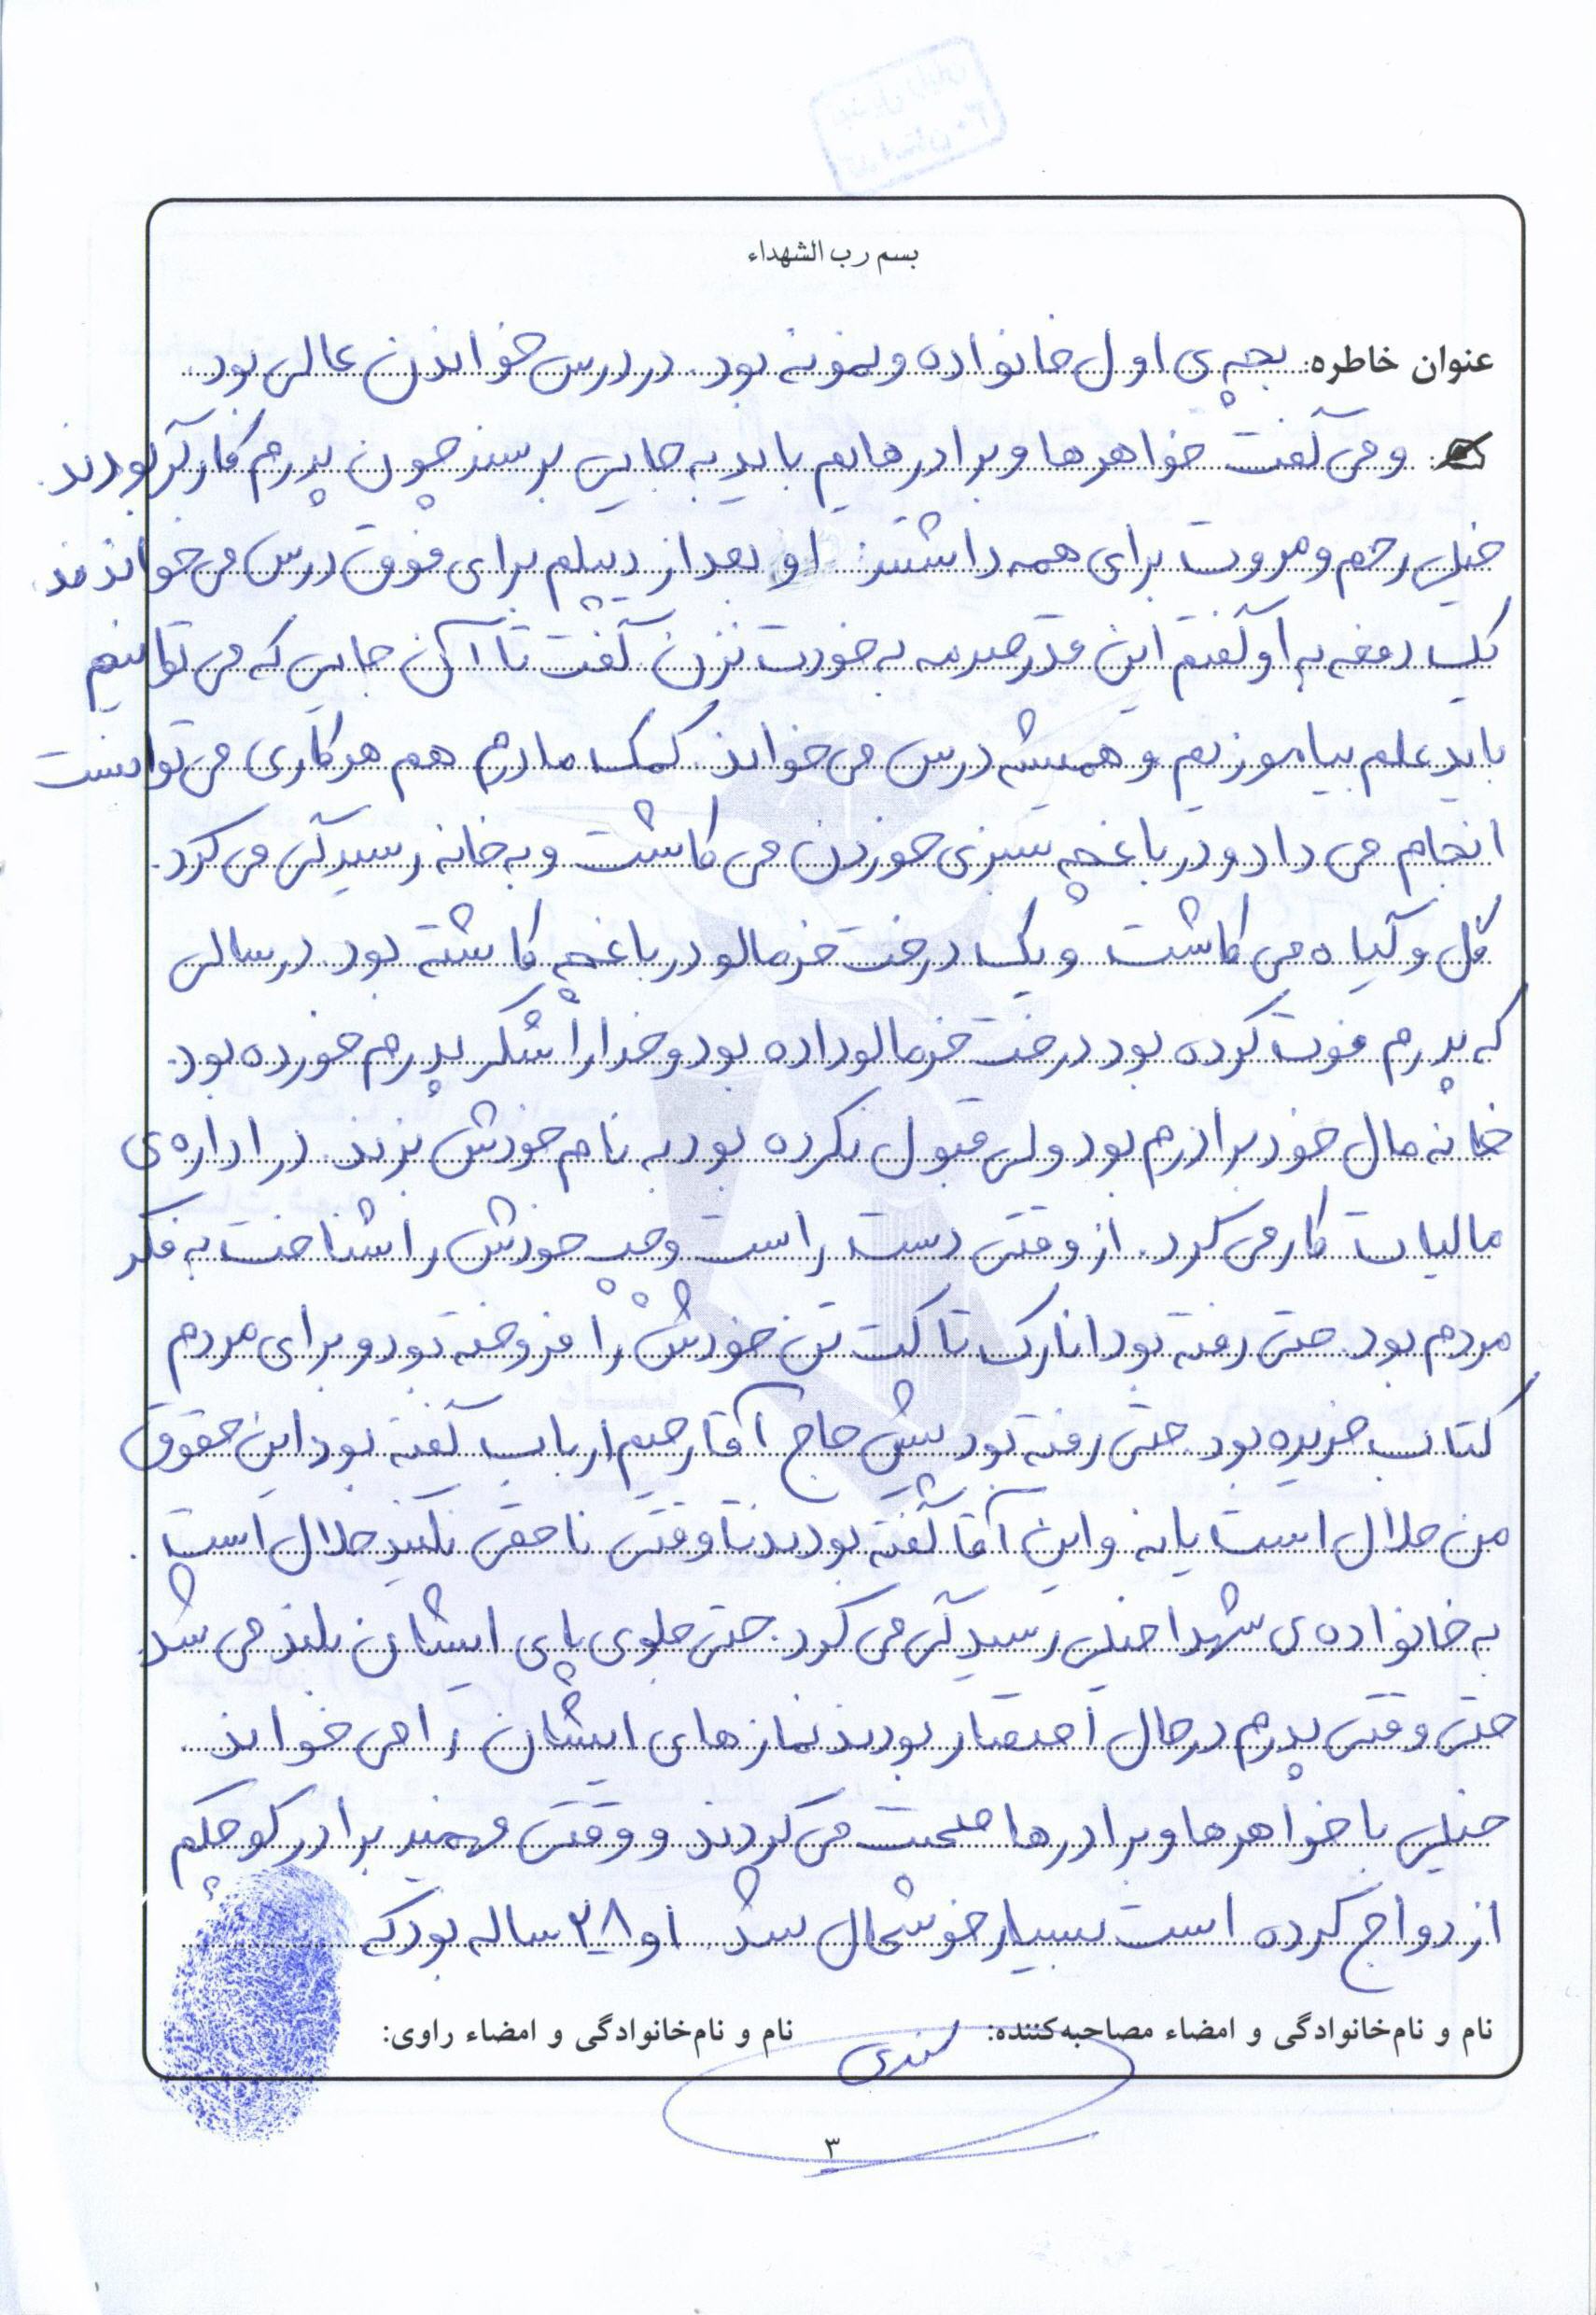 بسم رب الشهداء
عنوان خاطره: بچه ی اول خانواده و نمونه بود. در درس خواندن عالی بود.
و می گفت خواهرها و برادرهایم باید به جایی برسند چون پدرم کارگر بودند.
خیلی رحم و مروت برای همه داشتند. او بعد از دیپلم برای فوق درس می خواندند.
یک دفعه به او گفتم این قدر صدمه به خودت نزن گفت تا آن جایی که می توانیم
باید علم بیاموزیم و همیشه درس می خواند. کمک مادرم هم هر کاری می توانست
انجام می داد و در باغچه سبزی خوردن می کاشت و به خانه رسیدگی می کرد.
گل و گیاه می کاشت و یک درخت خرمالو در باغچه کاشته بود. در سالی
که پدرم فوت کرده بود درخت خرمالو داده بود و خدا را شکر پدرم خورده بود.
خانه مال خود برادرم بود ولی قبول نکرده بود به نام خودش بزند. در اداره ی
مالیات کار می کرد. از وقتی دست راست و چپ خودش را شناخت به فکر
مردم بود. حتی رفته بود انارک تا کت تن خودش را فروخته بود و برای مردم
کتاب خریده بود. حتی رفته بود پیش حاج آقا رحیم ارباب گفته بود این حقوق
من حلال است یا نه و این آقا گفته بودند تا وقتی ناحقی نکنید حلال است.
به خانواده ی شهدا خیلی رسیدگی می کرد. حتی جلوی پای ایشان بلند می شد.
حتی وقتی پدرم در حال احتضار بودند نمازهای ایشان را می خواند.
خیلی با خواهرها و برادرها صحبت می کردند و وقتی فهمید برادر کوچکم
ازدواج کرده است بسیار خوشحال شد. او ۲۸ ساله بود که
نام و نام‌خانوادگی و امضاء مصاحبه‌کننده: نام و نام‌خانوادگی و امضاء راوی:
۳